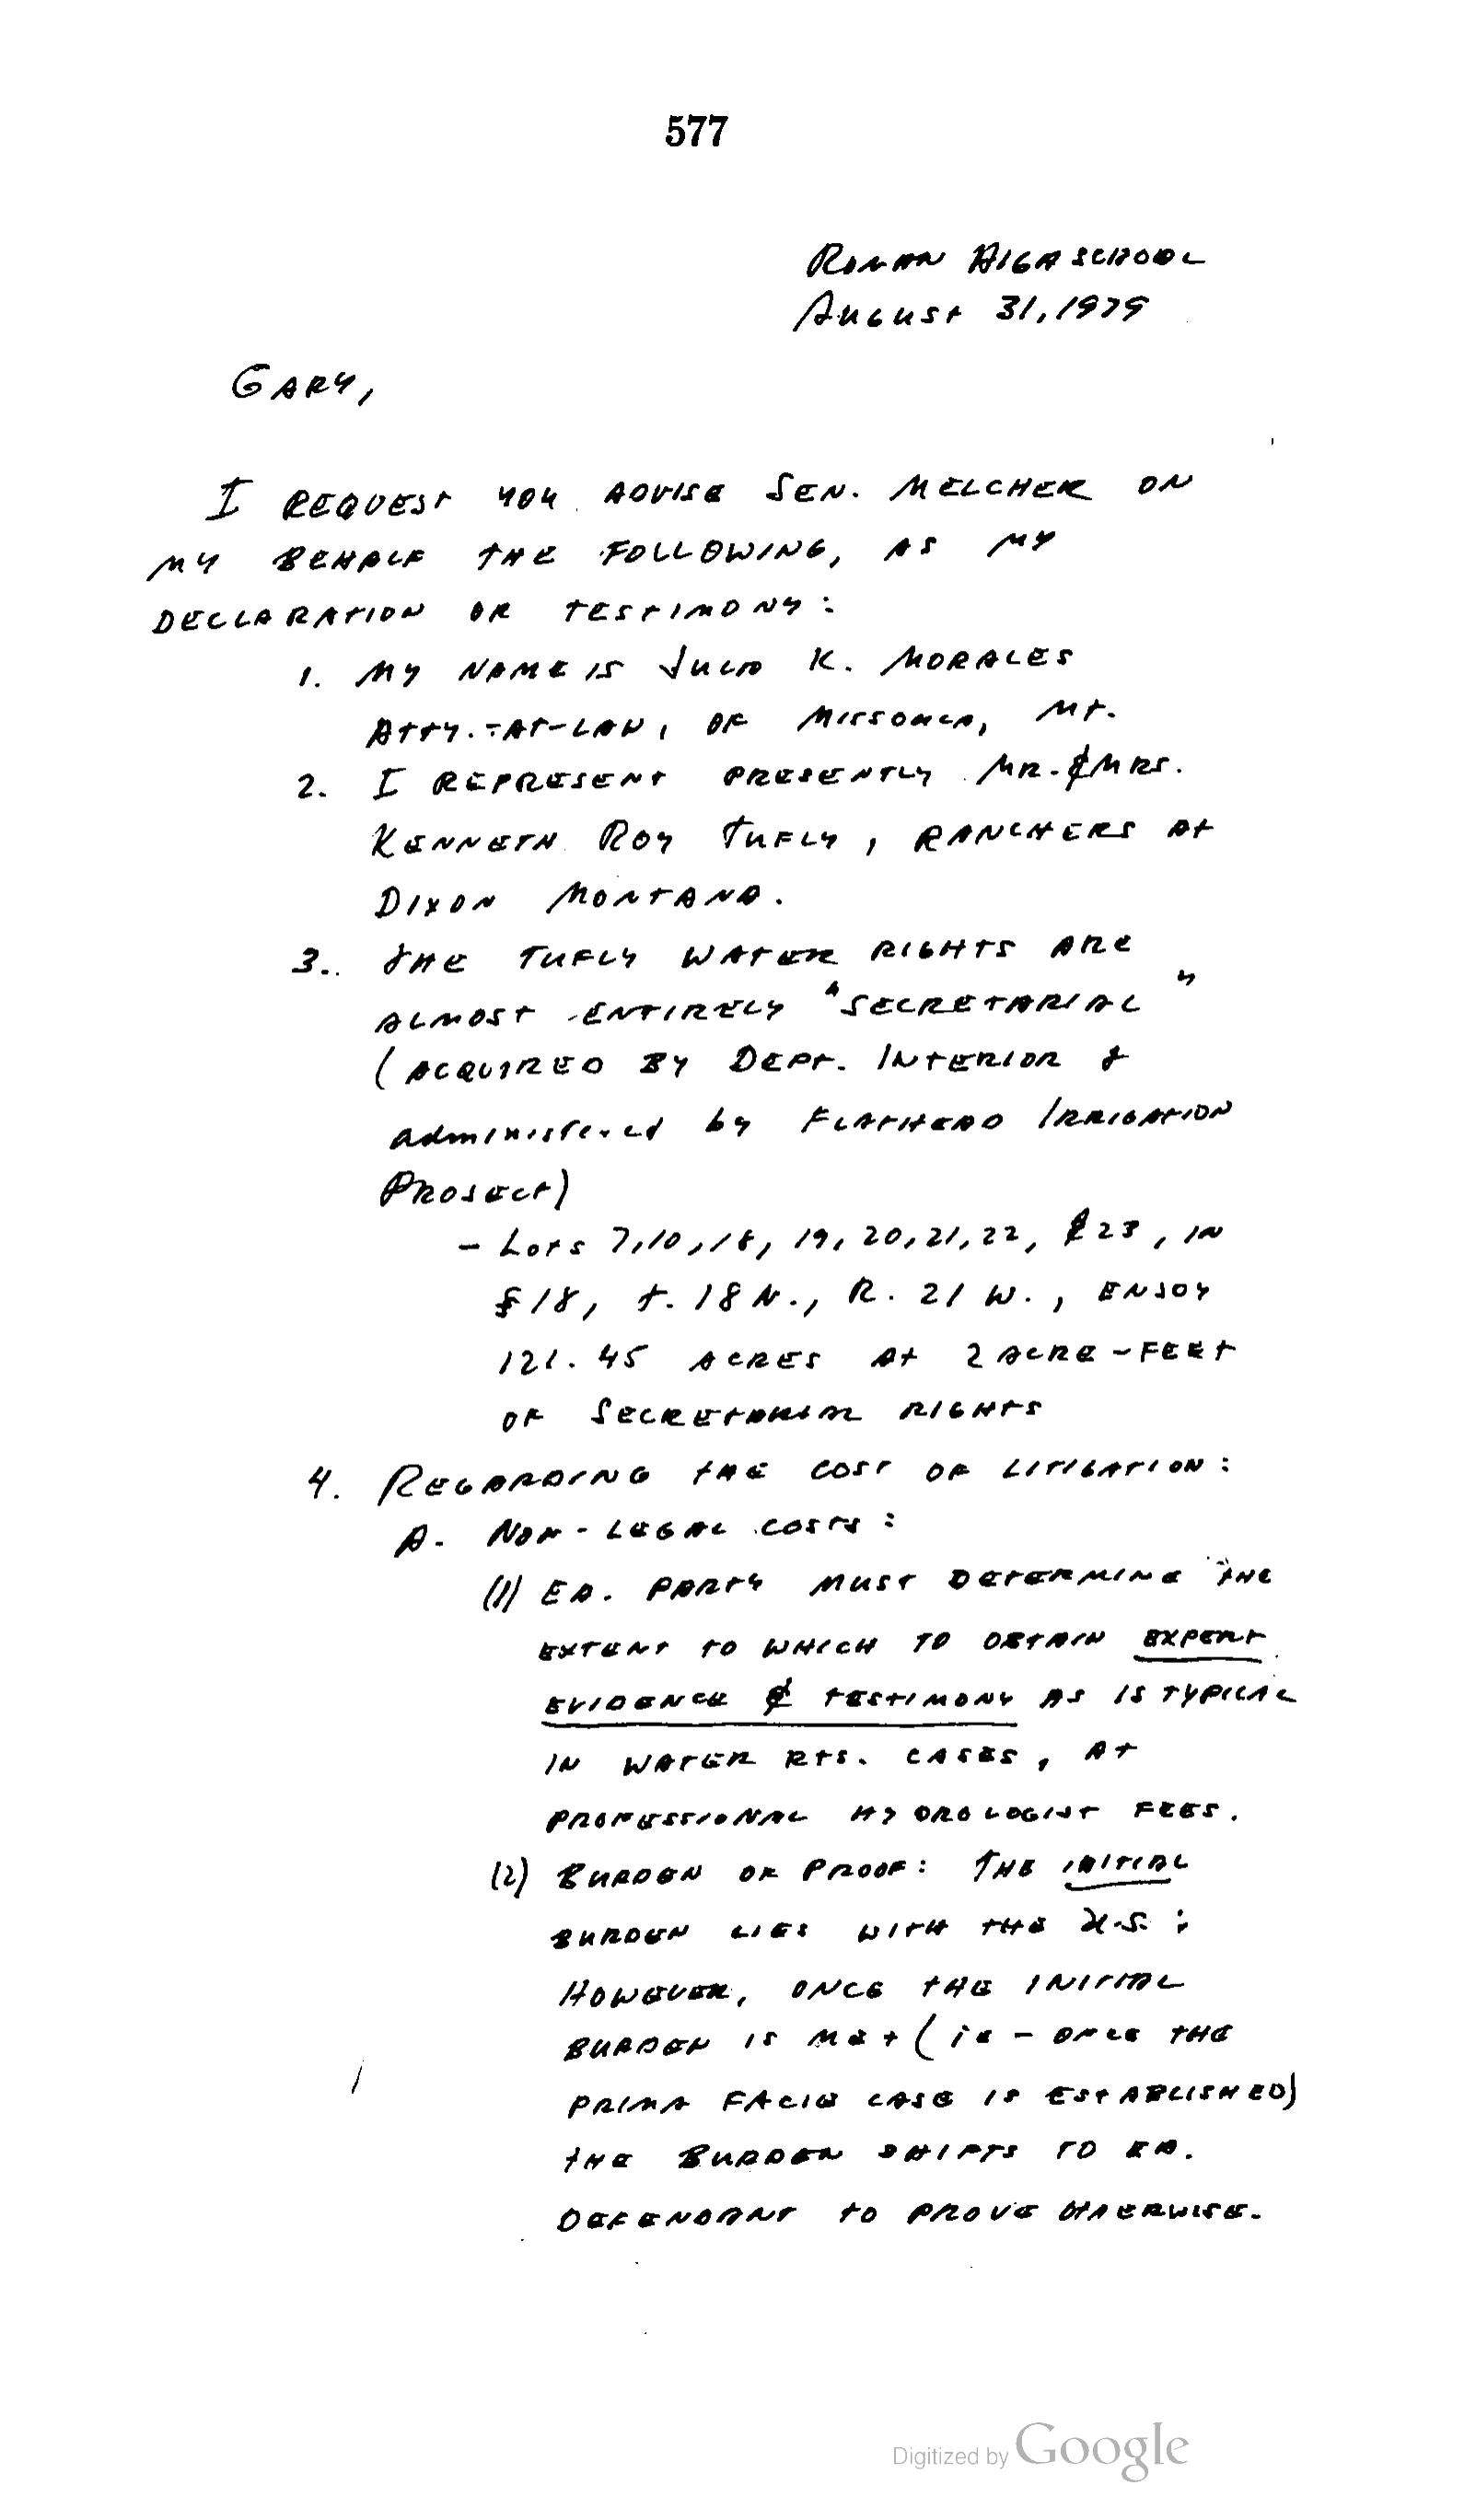 577
Ronan High School
August 31, 1979
Gary,
I request you advise Sen. Melcher on
my behalf the following, as my
declaration or testimony:
1. My name is Julio K. Morales
Atty.-at-law, of Missoula, Mt.
2. I represent presently Mr. & Mrs.
Kenneth Roy Tufly, ranchers at
Dixon Montana.
3. The Tufly water rights are
almost entirely "Secretarial"
(acquired by Dept. Interior &
administered by Flathead Irrigation
Project)
- Lots 7, 10, 18, 19, 20, 21, 22, & 23, in
§ 18, T. 18 N., R. 21 W., enjoy
121.45 acres at 2 acre-feet
of Secretarial rights
4. Regarding the cost of litigation:
A. Non-legal costs:
(1) Ea. party must determine the
extent to which to obtain expert
evidence & testimony as is typical
in water rts. cases, at
professional hydrologist fees.
(2) Burden of proof: The initial
burden lies with the U.S.;
However, once the initial
burden is met (ie - once the
prima facie case is established)
the burden shifts to ea.
defendant to prove otherwise.
Digitized by Google